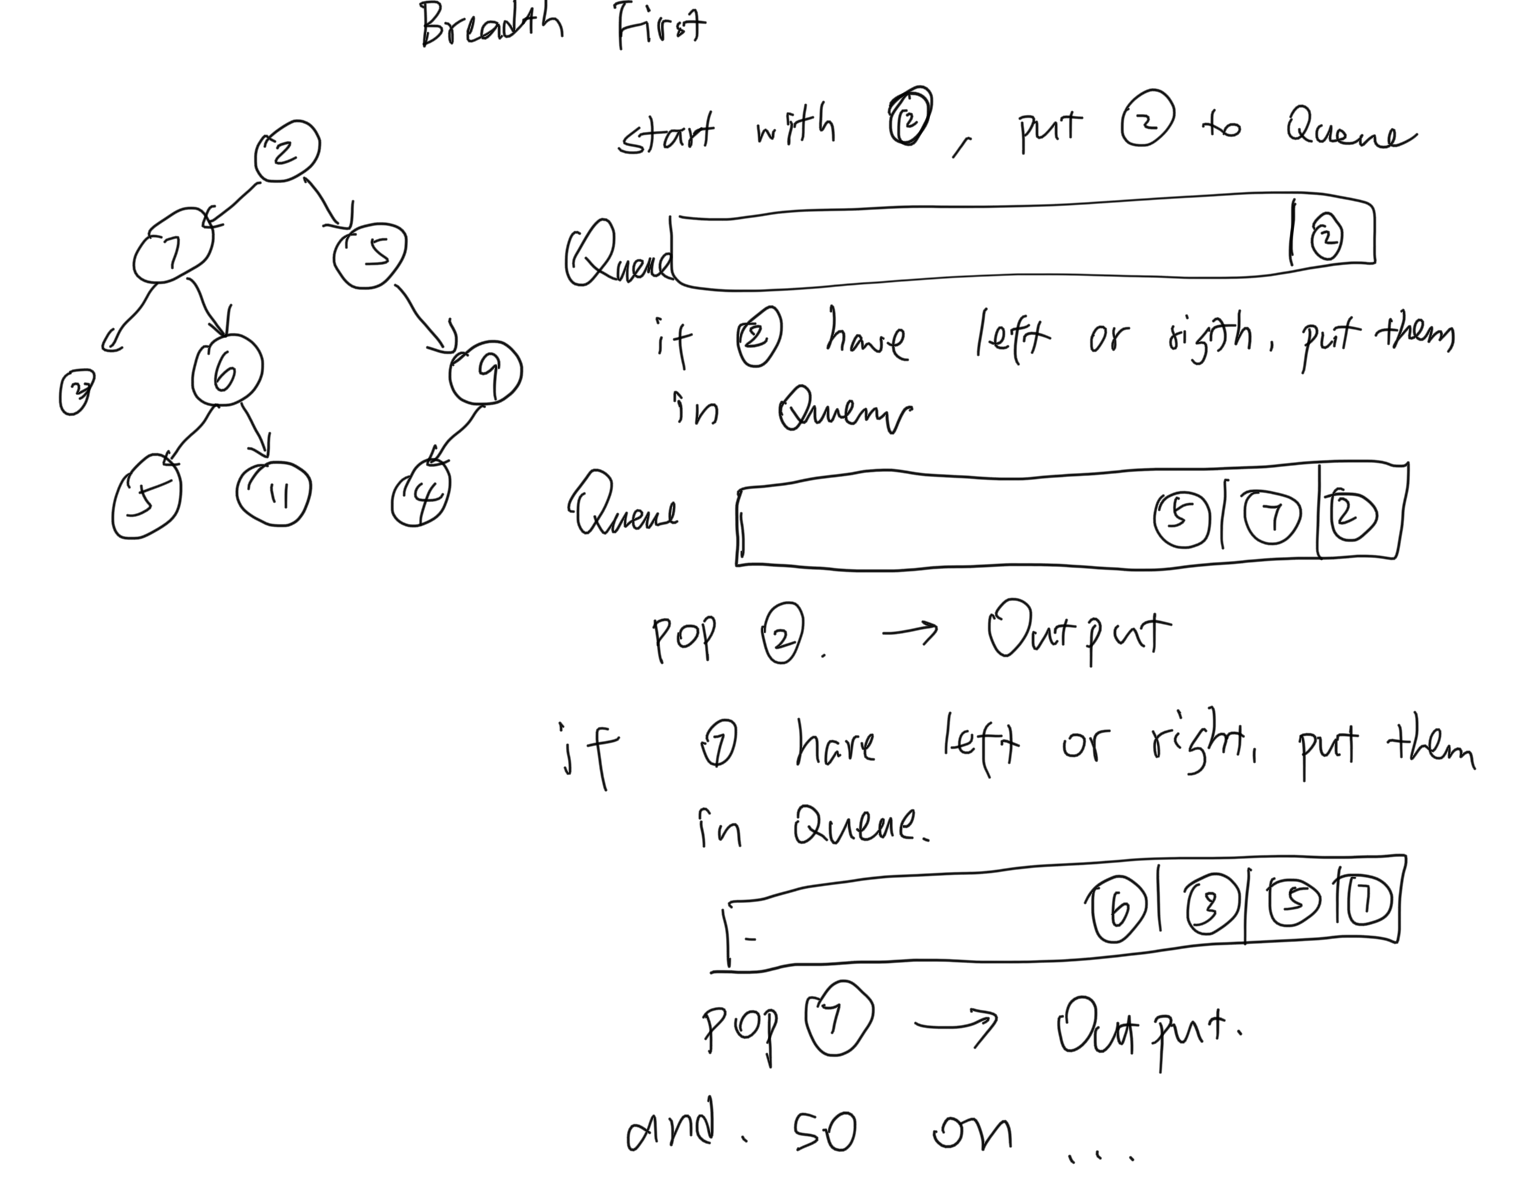 Breadth First
start with 2, put 2 to Queue
2
7 5
Queue 2
if 2 have left or rigth, put them
6 9
in Queue
5 11 4
Queue 5 7 2
pop 2. → Output
if 7 have left or right, put them
in Queue.
6 3 5 7
pop 7 → Output.
and. so on ...